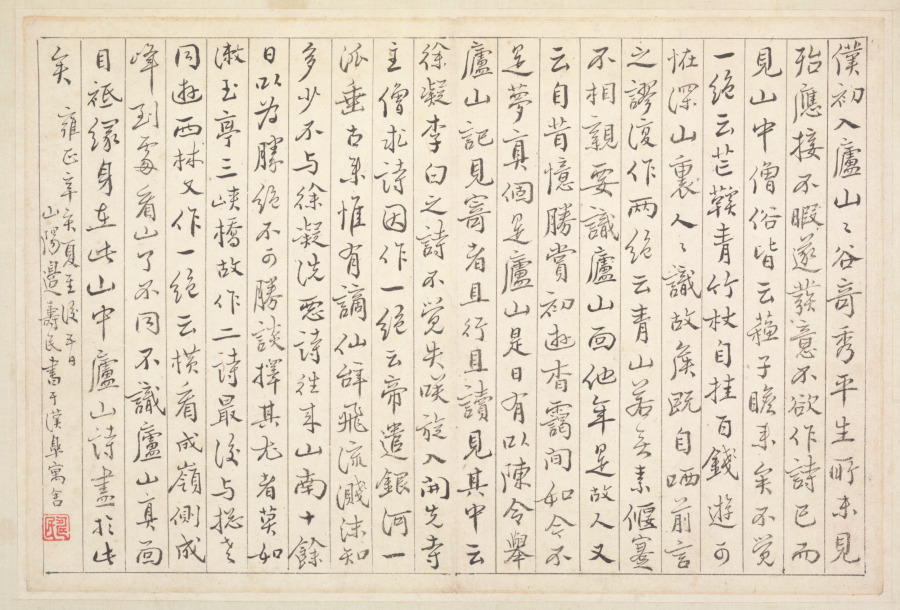 僕初入廬山〻谷奇秀平生所未見
殆應接不暇遂發意不欲作詩已而
見山中僧俗皆云蘓子瞻来矣不覺
一絶云芒鞵青竹杖自挂百錢遊可
恠深山裏人〻識故矦既自哂前言
之謬復作兩絶云青山若無素偃蹇
不相親要識廬山面他年是故人又
云自昔憶勝賞初遊杳靄間如今不
是夢真個是廬山是日有以陳令舉
廬山記見寄者且行且讀見其中云
徐凝李白之詩不覺失咲旋入開先寺
主僧求詩因作一絶云帝遣銀河一
派垂古来惟有謫仙辭飛流濺沫知
多少不与徐凝洗惡詩往来山南十餘
日以為勝絶不可勝談擇其尤者莫如
漱玉亭三峽橋故作二詩最後与摠老
同遊西林又作一絶云橫看成嶺側成
峰到處看山了不同不識廬山真面
目祗緣身在此山中廬山詩盡於此
矣
雍正辛亥夏至後五日
山陽邊壽民書于漢臯寓舍